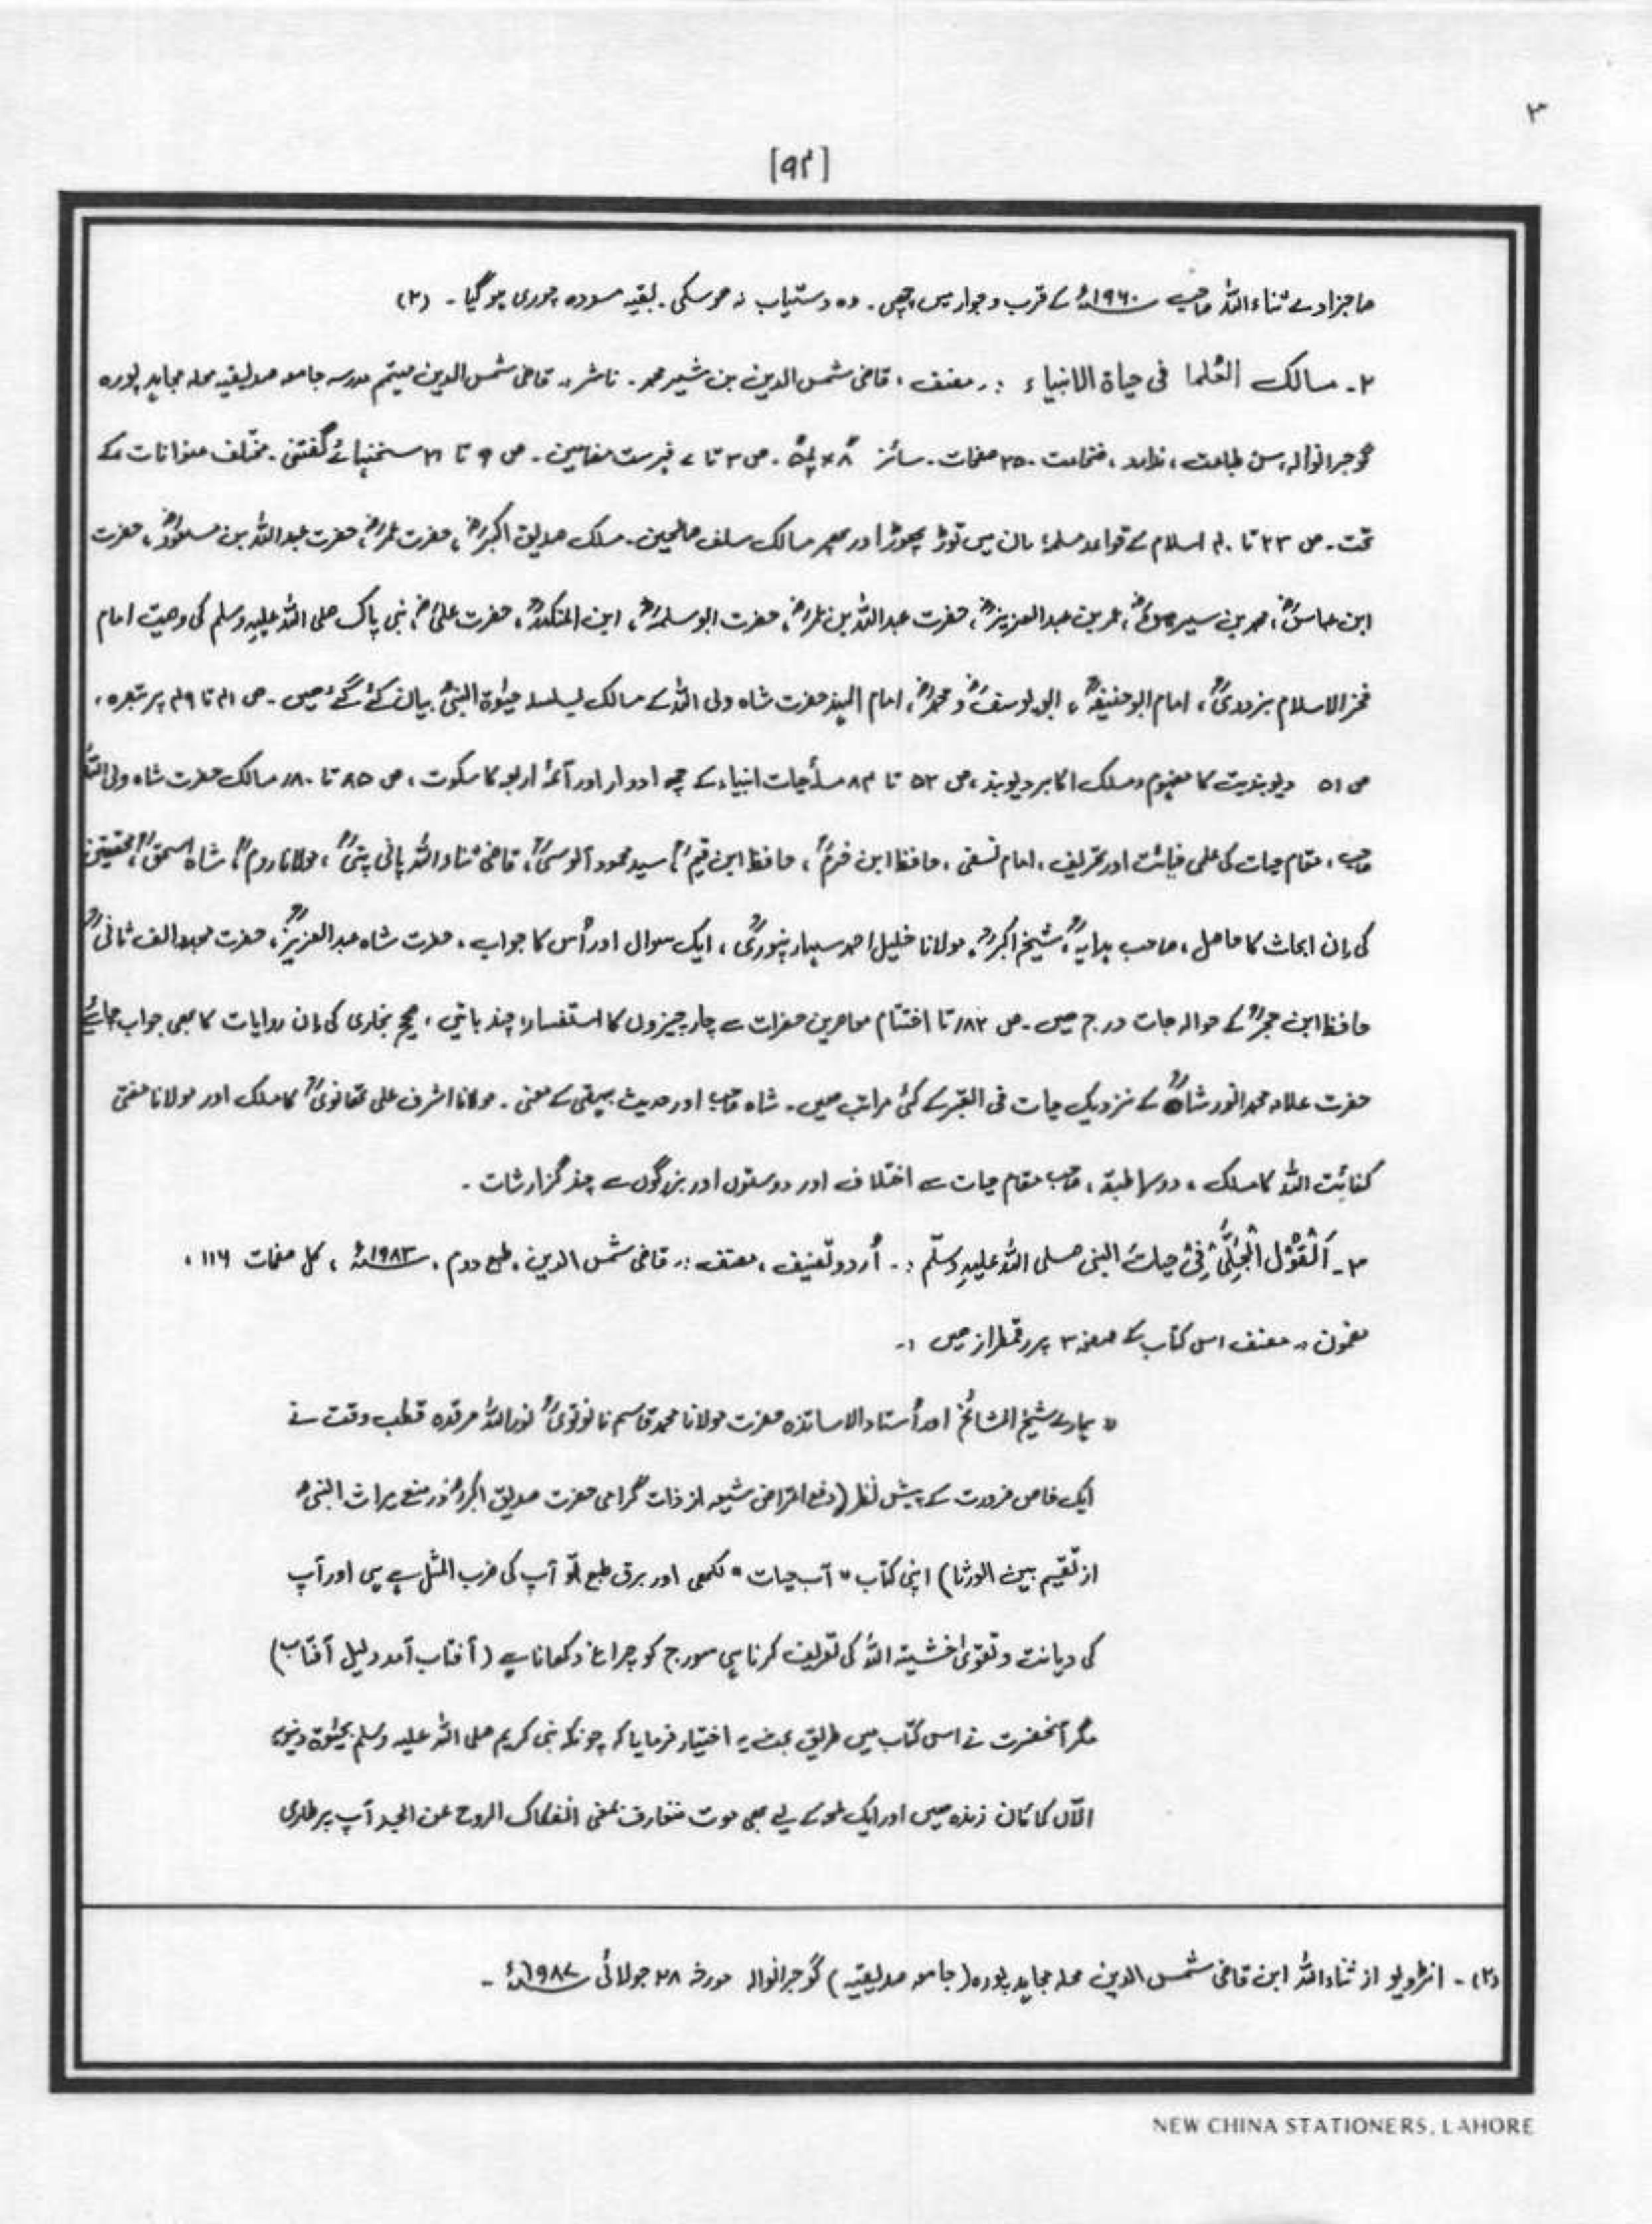 ۳
[۹۴]
صاجزادے ثناءاللہ صاحب ۱۹۶۰ء کے قرب و جوار میں چھپی ۔ وہ دستیاب نہ ہوسکی ۔ بقیہ مسودہ چوری ہو گیا ۔ (۲)
۲ ۔ مسالک العُلما فی حیاة الانبیاء :۔ مصنف ، قاضی شمس الدین بن شیر محمد ۔ ناشر :۔ قاضی شمس الدین مہتمم مدرسہ جامعہ صدیقیہ محلہ مجاہد پورہ
گوجرانوالہ ، سن طباعت ، ندارد ، ضخامت ۔ صفحات ۔ سائز ۔ ص ۳ تا ۷ فہرست مضامین ۔ ص ۹ تا ۲۱ سخنہائے گفتنی ۔ مختلف عنوانات کے
تحت ۔ ص ۲۳ تا ۴۰ اسلام کے قواعد مسلمہ ، ان میں توڑ پھوڑ اور پھر مسالک سلف صالحین ۔ مسلک صدیق اکبرؓ ، حضرت عمرؓ ، حضرت عبداللہ بن مسعودؓ ، حضرت
ابن عباسؓ ، محمد بن سیرینؒ ، عمر بن عبدالعزیزؒ ، حضرت عبداللہ بن عمرؓ ، حضرت ابو سلمہؓ ، ابن المنکدرؒ ، حضرت علیؓ ، نبی پاک صلی اللہ علیہ وسلم کی وصیت امام
فخر الاسلام بزدویؒ ، امام ابو حنیفہؒ ، ابو یوسفؒ و محمدؒ ، امام الہند حضرت شاہ ولی اللہ کے مسالک بسلسلہ حیٰوة النبیؐ بیان کئے گئے ہیں ۔ ص ۴۱ تا ۴۹ پر تبصرہ ،
ص ۵۱ دیوبندیت کا مفہوم و مسلک اکابر دیوبند ، ص ۵۳ تا ۸۴ مسأ حیات انبیاء کے چھ ادوار اور آئمۂ اربعہ کا سکوت ، ص ۸۵ تا ۱۸۰ مسالک حضرت شاہ ولی اللہؒ
صاحب ، مقام حیات کی علمی خیانت اور تحریف ، امام نسفی ، حافظ ابن حزمؒ ، حافظ ابن قیمؒ ، سید محمود آلوسیؒ ، قاضی ثناءاللہ پانی پتیؒ ، مولانا رومؒ ، شاہ اسحٰقؒ ، محققین
کی ان ابحاث کا حاصل ، صاحب ہدایہؒ ، شیخ اکبرؒ ، مولانا خلیل احمد سہارنپوریؒ ، ایک سوال اور اُس کا جواب ، حضرت شاہ عبدالعزیزؒ ، حضرت مجدد الف ثانیؒ
حافظ ابن حجرؒ کے حوالہ جات درج ہیں ۔ ص ۱۸۲ تا اختتام معاصرین حضرات سے چار چیزوں کا استفسار ، چند باتیں ، صحیح بخاری کی ان روایات کا بھی جواب چاہئے
حضرت علامہ محمد انور شاہؒ کے نزدیک حیات فی القبر کے کئی مراتب ہیں ۔ شاہ صاحب اور حدیث بیہقی کے معنی ۔ مولانا اشرف علی تھانویؒ کا مسلک اور مولانا مفتی
کفائت اللہ کا مسلک ، دوسرا طبقہ ، صاحب مقام حیات سے اختلاف اور دوستوں اور بزرگوں سے چند گزارشات ۔
۳ ۔ اَلْقَوْلُ الْجَلِّیُ فِیْ حیاتُ النبی صلی اللہ علیہِ وسلّم :۔ اُردو تصنیف ، مصنف :۔ قاضی شمس الدین ، طبع دوم ، ۱۹۸۳ء ، کل صفحات ۱۱۶ ،
مضمون :۔ مصنف اس کتاب کے صفحہ ۳ پر رقمطراز ہیں :۔
" ہمارے شیخ المشائخ اور اُستاد الاساتذہ حضرت مولانا محمد قاسم نانوتویؒ نوراللہ مرقدہ قطب وقت نے
ایک خاص ضرورت کے پیش نظر (دفع اعتراض شیعہ از ذات گرامی حضرت صدیق اکبرؓ در منع میراث النبیؐ
از تقیم بین الورثا) اپنی کتاب " آب حیات " لکھی اور برق طبع تو آپ کی ضرب المثل ہے ہی اور آپ
کی دیانت و تقویٰ خشیتہ اللہ کی تعریف کرنا ہی سورج کو چراغ دکھانا ہے (آفتاب آمد دلیل آفتاب)
مگر آنحضرت نے اس کتاب میں طریق بحث یہ اختیار فرمایا کہ چونکہ نبی کریم صلی اللہ علیہ وسلم بحیٰوة دنیویہ
الآن کما کان زندہ ہیں اور ایک لمحہ کے لیے بھی موت متعارف بمعنی انفکاک الروح عن الجسد آپ پر طاری
(۲) ۔ انٹرویو از ثناءاللہ ابن قاضی شمس الدین محلہ مجاہد پورہ (جامعہ صدیقیہ) گوجرانوالہ مورخہ ۲۸ جولائی ۱۹۸۷ء ۔
NEW CHINA STATIONERS, LAHORE